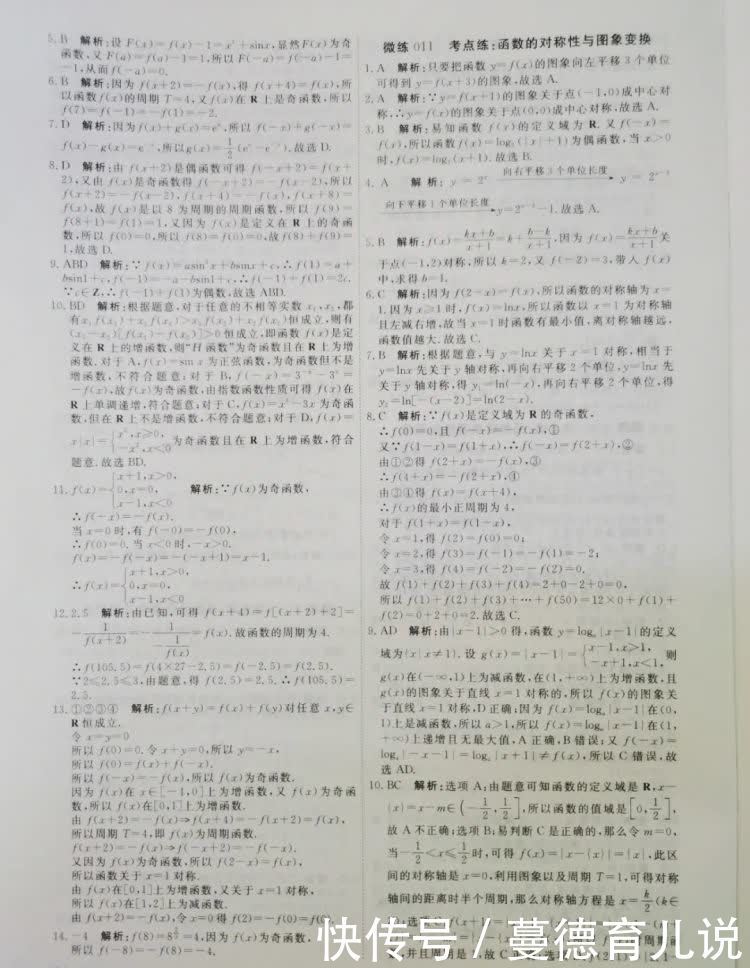 5. B 解析:设 F(x)=f(x)-1=x³+sinx,显然F(x)为奇
函数,又F(a)=f(a)-1=1,所以F(-a)=f(-a)-1=
-1,从而f(-a)=0.
6. B 解析:因为 f(x+2)=-f(x),得 f(x+4)=f(x),所
以函数f(x)的周期 T=4,又f(x)在 R 上是奇函数,所以
f(7)=f(-1)=-f(1)=-2.
7. D 解析:因为f(x)+g(x)=eˣ,所以 f(-x)+g(-x)=
f(x)-g(x)=e⁻ˣ,所以g(x)=1/2(eˣ-e⁻ˣ).故选D.
8. D 解析:由 f(x+2)是偶函数可得 f(-x+2)=f(x+
2),又由 f(x)是奇函数得 f(-x+2)=-f(x-2),所以
f(x+2)=-f(x-2),f(x+4)=-f(x),f(x+8)=
f(x),故 f(x)是以 8 为周期的周期函数,所以 f(9)=
f(8+1)=f(1)=1,又因为 f(x)是定义在 R 上的奇函
数,所以 f(0)=0,所以f(8)=f(0)=0,故f(8)+f(9)=
1,故选 D.
9. ABD 解析:∵f(x)=asin³x+bsinx+c,∴f(1)=a+
bsin1+c,f(-1)=-a-bsin1+c,∴f(-1)+f(1)=2c.
∵c∈Z,∴f(-1)+f(1)为偶数,故选 ABD.
10. BD 解析:根据题意,对于任意的不相等实数 x₁,x₂,都
有x₁f(x₁)+x₂f(x₂)>x₁f(x₂)+x₂f(x₁)恒成立,则有
(x₁-x₂)[f(x₁)-f(x₂)]>0恒成立,即函数 f(x)是定
义在 R 上的增函数,则“H 函数”为奇函数且在 R 上为增
函数.对于 A,f(x)=sin x 为正弦函数,为奇函数但不是
增函数,不符合题意;对于 B,f(-x)=3⁻ˣ-3ˣ=
-f(x),故f(x)为奇函数,由指数函数性质可得 f(x)在
R上单调递增,符合题意;对于 C,f(x)=x³-3x 为奇函
数,但在 R 上不是增函数,不符合题意;对于 D,f(x)=
x|x|={x²,x≥0, -x²,x<0 为奇函数且在 R 上为增函数,符合
题意.故选 BD.
11. f(x)={x+1,x>0, 0,x=0, x-1,x<0 解析:∵f(x)为奇函数,
∴f(-x)=-f(x).
当x=0时,有 f(-0)=-f(0),
∴f(0)=0.当x<0时,-x>0.
f(x)=-f(-x)=-(-x+1)=x-1.
∴f(x)={x+1,x>0, 0,x=0, x-1,x<0
12. 2.5 解析:由已知,可得 f(x+4)=f[(x+2)+2]=
-1/f(x+2)=-1/(-1/f(x))=f(x).故函数的周期为4.
∴f(105.5)=f(4×27-2.5)=f(-2.5)=f(2.5).
∵2≤2.5≤3,由题意,得 f(2.5)=2.5.∴f(105.5)=
2.5.
13. ①②③④ 解析:f(x+y)=f(x)+f(y)对任意 x,y∈
R恒成立.
令 x=y=0
所以 f(0)=0.令x+y=0,所以 y=-x,
所以 f(0)=f(x)+f(-x).
所以 f(-x)=-f(x),所以f(x)为奇函数.
因为 f(x)在 x∈[-1,0]上为增函数,又 f(x)为奇函
数,所以f(x)在[0,1]上为增函数.
由 f(x+2)=-f(x)⇒f(x+4)=-f(x+2)=f(x),
所以周期 T=4,即f(x)为周期函数.
f(x+2)=-f(x)⇒f(-x+2)=-f(-x).
又因为 f(x)为奇函数,所以 f(2-x)=f(x),
所以函数关于x=1对称.
由 f(x)在[0,1]上为增函数,又关于x=1对称,
所以 f(x)在[1,2]上为减函数.
由 f(x+2)=-f(x),令x=0得 f(2)=-f(0)=f(0).
14. -4 解析:f(8)=8^(2/3)=4,因为 f(x)为奇函数,
所以 f(-8)=-f(8)=-4.
微练 011 考点练:函数的对称性与图象变换
1. A 解析:只要把函数 y=f(x)的图象向左平移 3 个单位
可得到 y=f(x+3)的图象,故选 A.
2. A 解析:∵y=f(x+1)的图象关于点(-1,0)成中心对
称,∴y=f(x)的图象关于点(0,0)成中心对称,故选 A.
3. B 解析:易知函数 f(x)的定义域为 R.又 f(-x)=
f(x),所以函数 f(x)=log₂(|x|+1)为偶函数,当 x>0
时,f(x)=log₂(x+1).故选 B.
4. A 解析:y=2ˣ 向右平移3个单位长度 y=2ˣ⁻³
向下平移1个单位长度 y=2ˣ⁻³-1.故选 A.
5. B 解析:f(x)=(kx+b)/(x+1)=k+(b-k)/(x+1),因为 f(x)=(kx+b)/(x+1)关
于点(-1,2)对称,所以 k=2,又 f(-2)=3,带入 f(x)
中,求得b=1.
6. C 解析:因为 f(2-x)=f(x),所以函数的对称轴为 x=
1.因为 x≥1 时,f(x)=lnx,所以函数以 x=1 为对称轴
且左减右增,故当 x=1 时函数有最小值,离对称轴越远,
函数值越大.故选 C.
7. B 解析:根据题意,与 y=lnx 关于 x=1 对称,相当于
y=lnx 先关于 y 轴对称,再向右平移 2 个单位,y=lnx 先
关于 y 轴对称,得 y₁=ln(-x),再向右平移 2 个单位,得
y₂=ln[-(x-2)]=ln(2-x).
8. C 解析:∵f(x)是定义域为 R 的奇函数,
∴f(0)=0,且 f(-x)=-f(x),①
又∵f(1-x)=f(1+x),∴f(-x)=f(2+x),②
由①②得 f(2+x)=-f(x),③
∴f(4+x)=-f(2+x),④
由③④得 f(x)=f(x+4),
∴f(x)的最小正周期为 4,
对于 f(1+x)=f(1-x),
令 x=1,得 f(2)=f(0)=0;
令 x=2,得 f(3)=f(-1)=-f(1)=-2;
令 x=3,得 f(4)=f(-2)=-f(2)=0.
故 f(1)+f(2)+f(3)+f(4)=2+0-2+0=0,
所以 f(1)+f(2)+f(3)+…+f(50)=12×0+f(1)+
f(2)=0+2+0=2.故选 C.
9. AD 解析:由|x-1|>0 得,函数 y=logₐ|x-1|的定义
域为{x|x≠1}.设 g(x)=|x-1|={x-1,x>1, -x+1,x<1, 则
g(x)在(-∞,1)上为减函数,在(1,+∞)上为增函数,且
g(x)的图象关于直线 x=1 对称的,所以 f(x)的图象关
于直线 x=1 对称,D 正确;因为 f(x)=logₐ|x-1|在(0,
1)上是减函数,所以 a>1,所以 f(x)=logₐ|x-1|在(1,
+∞)上递增且无最大值,A 正确,B 错误;又 f(-x)=
logₐ|-x-1|=logₐ|x+1|≠f(x),所以 C 错误,故
选 AD.
10. BC 解析:选项 A:由题意可知函数的定义域是 R,x-
{x}=x-m∈(-1/2,1/2],所以函数的值域是[0,1/2],
故 A 不正确;选项 B:易判断 C 是正确的,那么令 m=0,
当-1/2<x≤1/2时,可得 f(x)=|x-{x}|=|x|,此区
间的对称轴是 x=0,利用图象以及周期 T=1,可得对称
轴间的距离时半个周期,那么对称轴方程是 x=k/2(k∈
快传号 / 蔓德育儿说